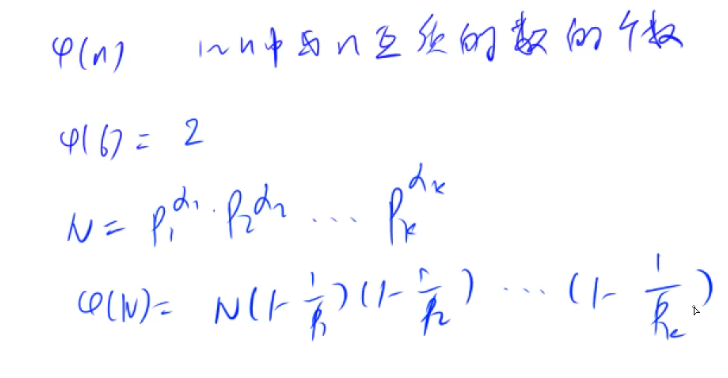 φ(n) 1~n中与n互质的数的个数
φ(6) = 2
N = P₁^α₁ · P₂^α₂ ... Pₖ^αₖ
φ(N) = N(1 - 1/P₁)(1 - 1/P₂) ... (1 - 1/Pₖ)